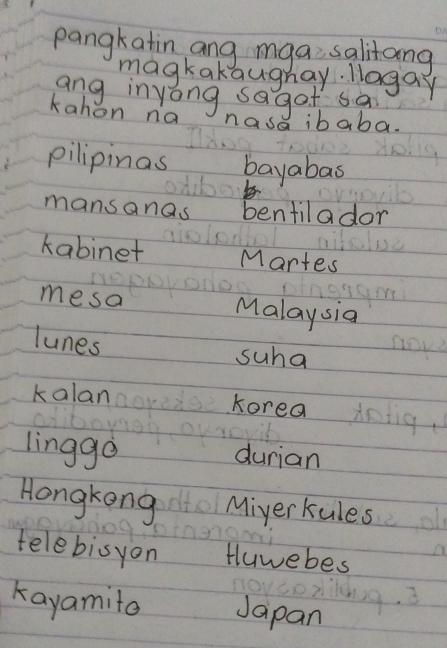 pangkatin ang mga salitang
magkakaugnay. Ilagay
ang inyong sagot sa
kahon na nasa ibaba.
pilipinas bayabas
mansanas bentilador
kabinet Martes
mesa Malaysia
lunes suha
kalan korea
linggo durian
Hongkong Miyerkules
telebisyon Huwebes
kayamito Japan